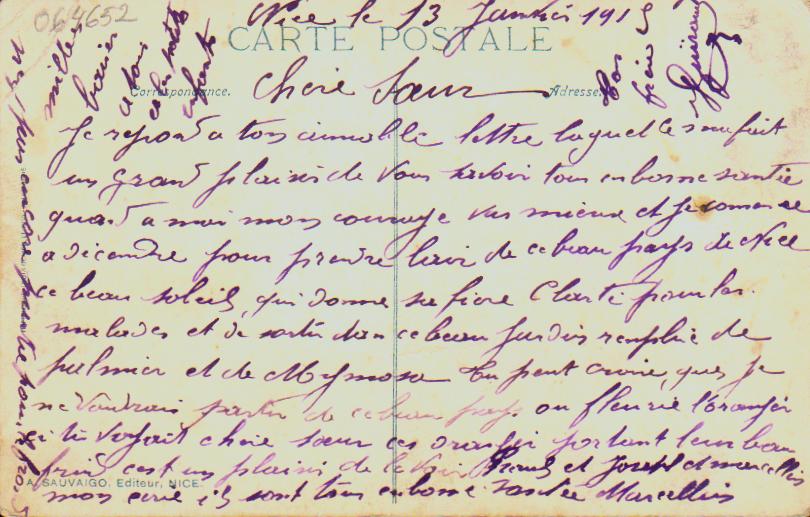 064652
Nice le 13 Janvier 191
CARTE POSTALE
Correspondance.
Adresse.
Chere Sœur
Je repond a ton aimable lettre laquelle ma fait
un grand plaisir de vous savoir tous en bonne santée
quand a moi mon courage vas mieux et Je comence
a decendre pour prendre lair de ce beau pays de Nice
ce beau soleil qui donne sa fiere Clarté pour les
malades et de sortir dan ce beau Jardin remplie de
palmier et de Mymosa tu peut croire que Je
ne voudrais partir de ce beau pays ou fleurie loranger
si tu voyait chere sœur ces oranger portant leur beau
fruit cest un plaisir de le voir et Joseph et marcellin
mon ecrie ils sont tous en bonne santée Marcellin
A. SAUVAIGO, Editeur, NICE.
milles
baiser
a tous
et les petits
enfants
Ton
frère